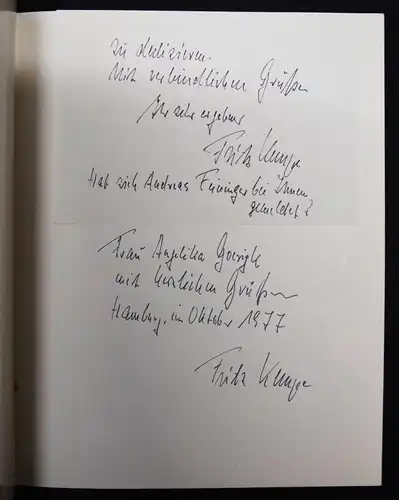 zu dedizieren.
Mit verbindlichen Grüßen
Ihr sehr ergebener
Fritz Kempe
Hat sich Andreas Feininger bei Ihnen
gemeldet?
Frau Angelika
mit herzlichen Grüßen
Hamburg, im Oktober 1977
Fritz Kempe